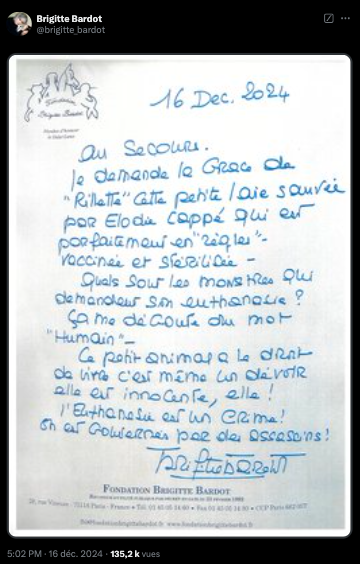 Brigitte Bardot
@brigitte_bardot
Fondation
Brigitte Bardot
16 Dec. 2024
Au Secours.
Je demande la Grace de
"Rillette" cette petite laie sauvée
par Elodie Cappé qui est
parfaitement en "règles" -
vaccinée et stérilisée -
Quels sont les monstres qui
demandent son euthanasie ?
ça me dégoute du mot
"Humain" -
Ce petit animal a le droit
de vivre c'est même un devoir
elle est innocente, elle !
l'Euthanasie est un crime !
On est Gouvernés par des assassins !
Brigitte Bardot
FONDATION BRIGITTE BARDOT
28, rue Vineuse - 75116 Paris - France • Tél. 01 45 05 14 60 • Fax 01 45 05 14 80 • CCP Paris
fbb@fondationbrigittebardot.fr www.fondationbrigittebardot.fr
5:02 PM · 16 déc. 2024 · 135,2 k vues